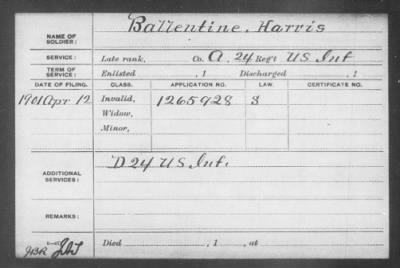 Ballentine, Harris
NAME OF SOLDIER:
SERVICE: Late rank, Co. A, 24 Reg't U.S. Inf
TERM OF SERVICE: Enlisted , 1 Discharged , 1
DATE OF FILING. CLASS. APPLICATION NO. LAW. CERTIFICATE NO.
1901 Apr 12 Invalid, 1265928 S
Widow,
Minor,
D 24 U.S. Inf.
ADDITIONAL SERVICES:
REMARKS:
Died , 1 , at